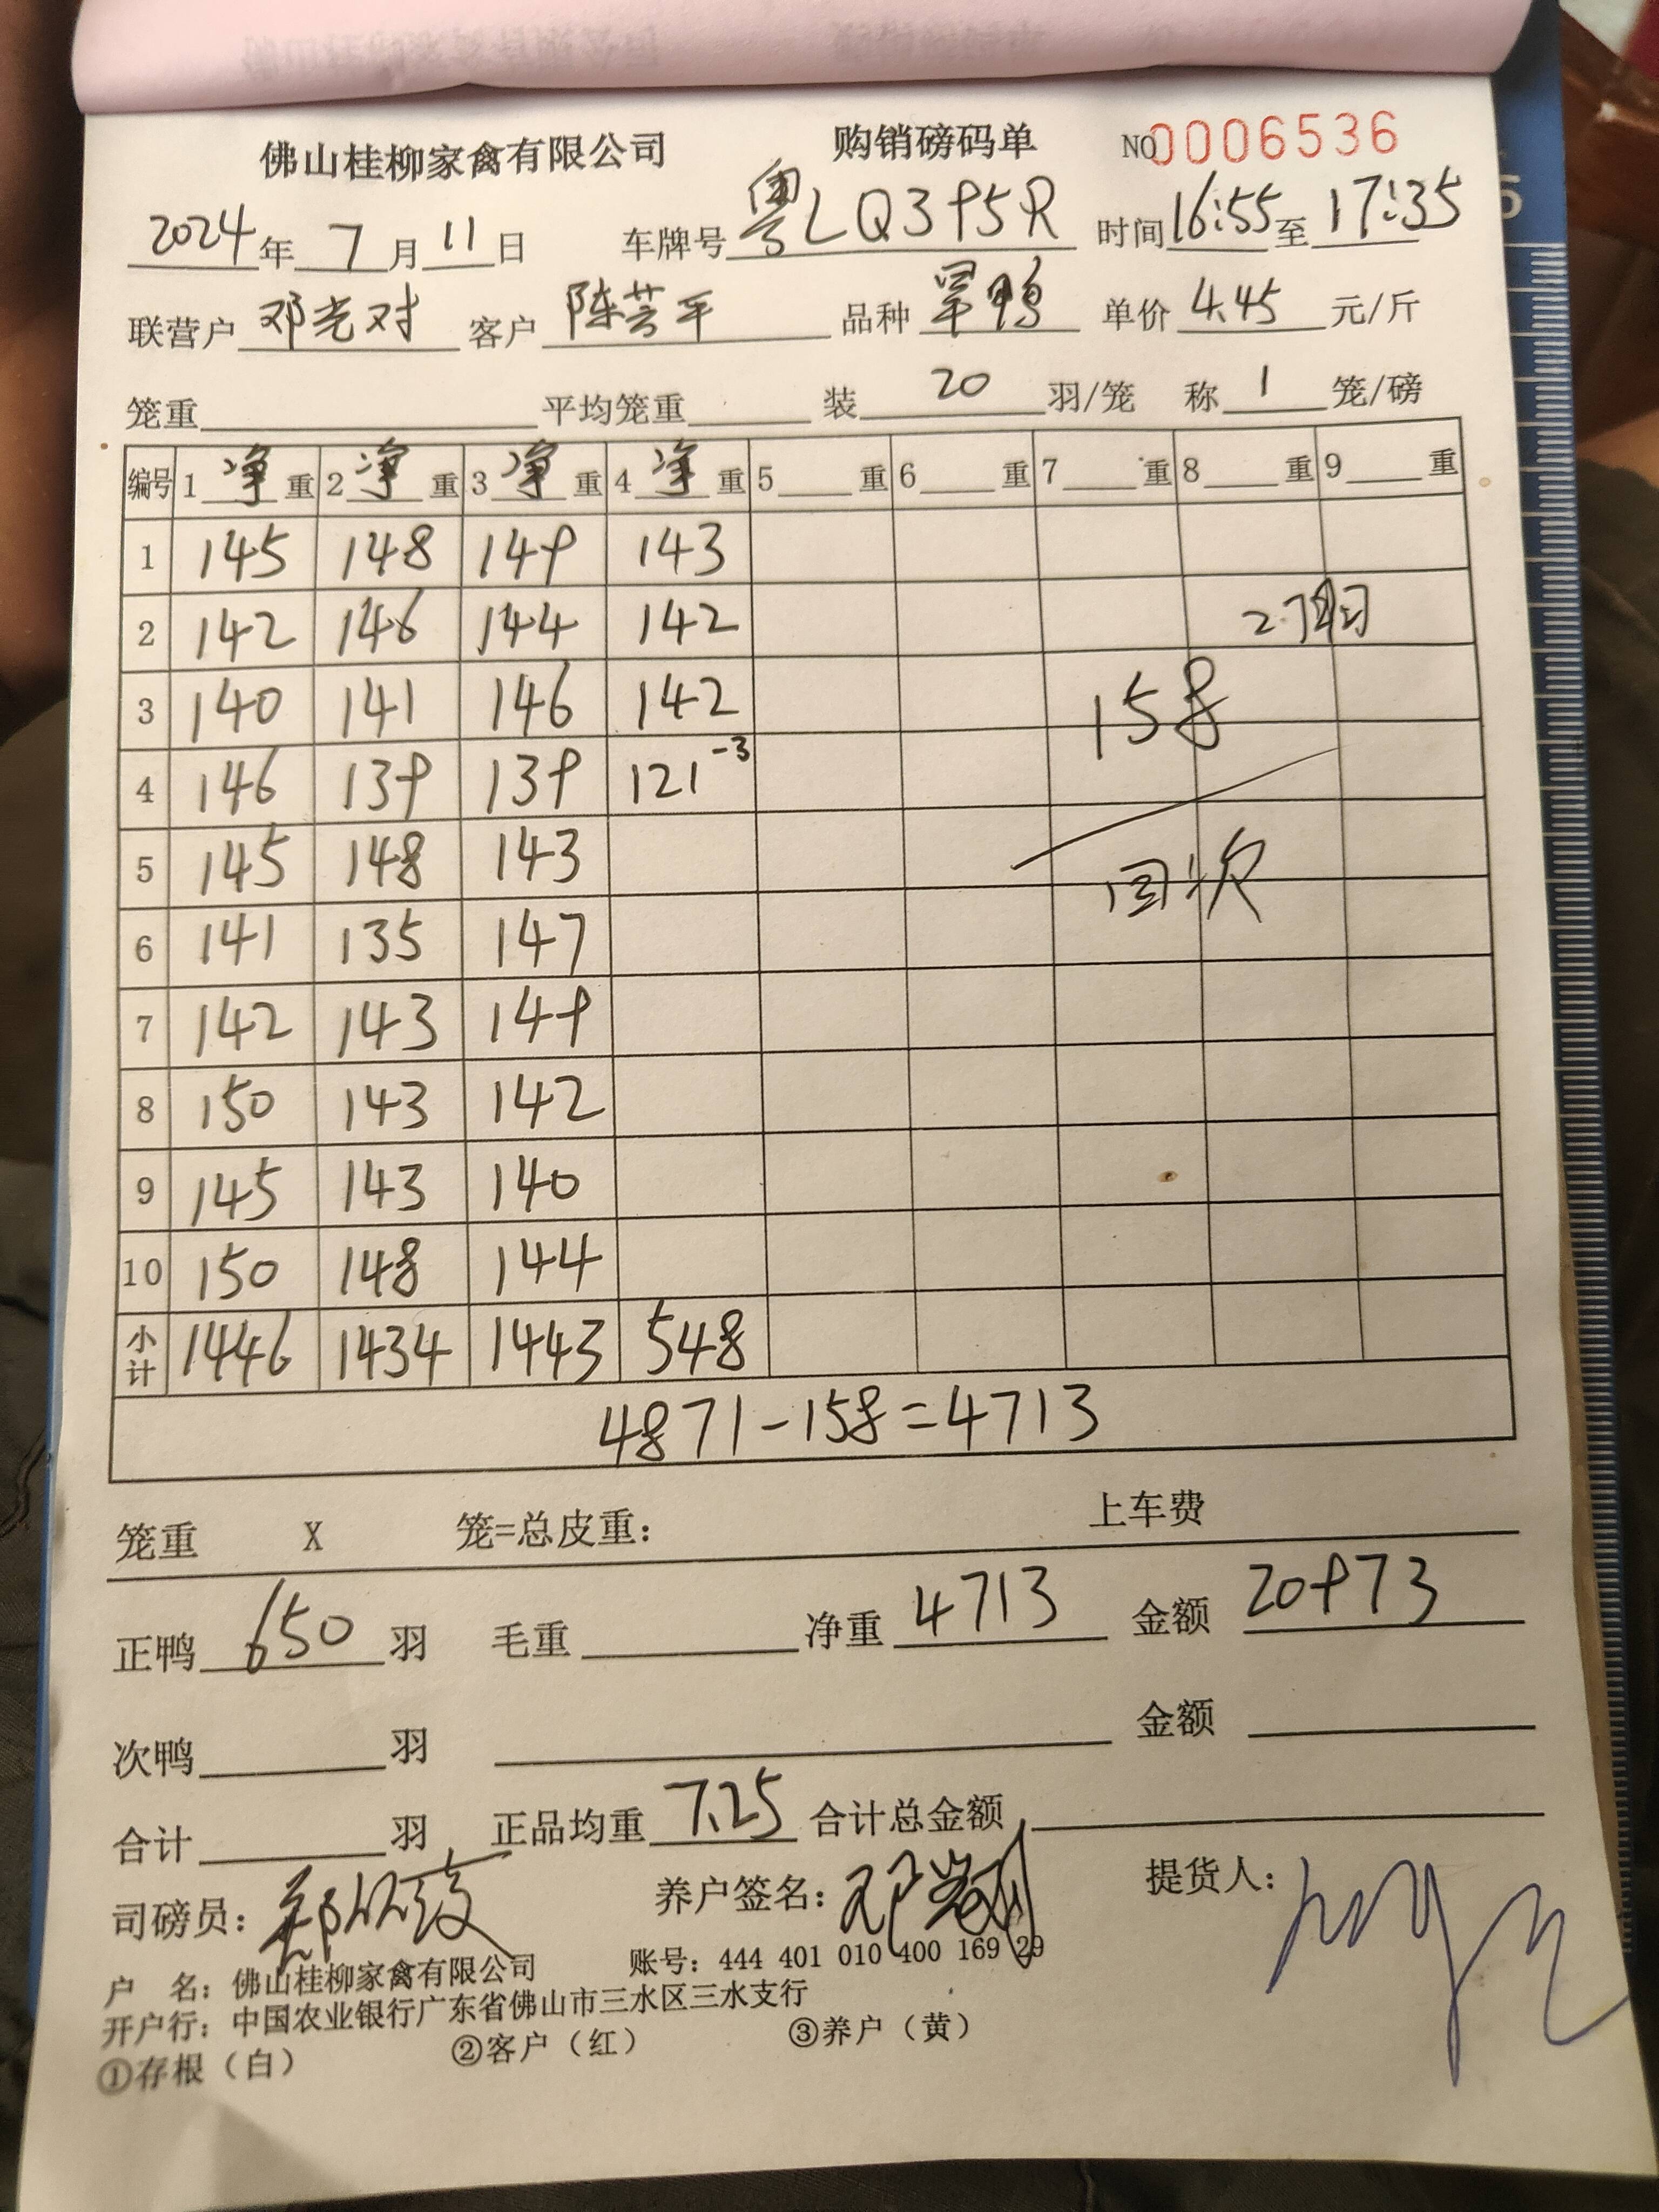 佛山桂柳家禽有限公司 购销磅码单 NO 0006536
2024年 7月 11日 车牌号 粤LQ395R 时间 16:55 至 17:35
联营户 邓光对 客户 陈芸平 品种 旱鸭 单价 4.45 元/斤
笼重 平均笼重 装 20 羽/笼 称 1 笼/磅
编号 1 净 重 2 净 重 3 净 重 4 净 重 5 重 6 重 7 重 8 重 9 重
1 145 148 149 143
2 142 146 144 142 27羽
3 140 141 146 142 158
4 146 139 139 121 -3
5 145 148 143 回次
6 141 135 147
7 142 143 149
8 150 143 142
9 145 143 140
10 150 148 144
小计 1446 1434 1443 548
4871-158=4713
笼重 X 笼=总皮重: 上车费
正鸭 650 羽 毛重 净重 4713 金额 20973
次鸭 羽 金额
合计 羽 正品均重 7.25 合计总金额
司磅员: 养户签名: 提货人:
户 名: 佛山桂柳家禽有限公司 账号: 444 401 010 400 169 29
开户行: 中国农业银行广东省佛山市三水区三水支行
①存根（白） ②客户（红） ③养户（黄）